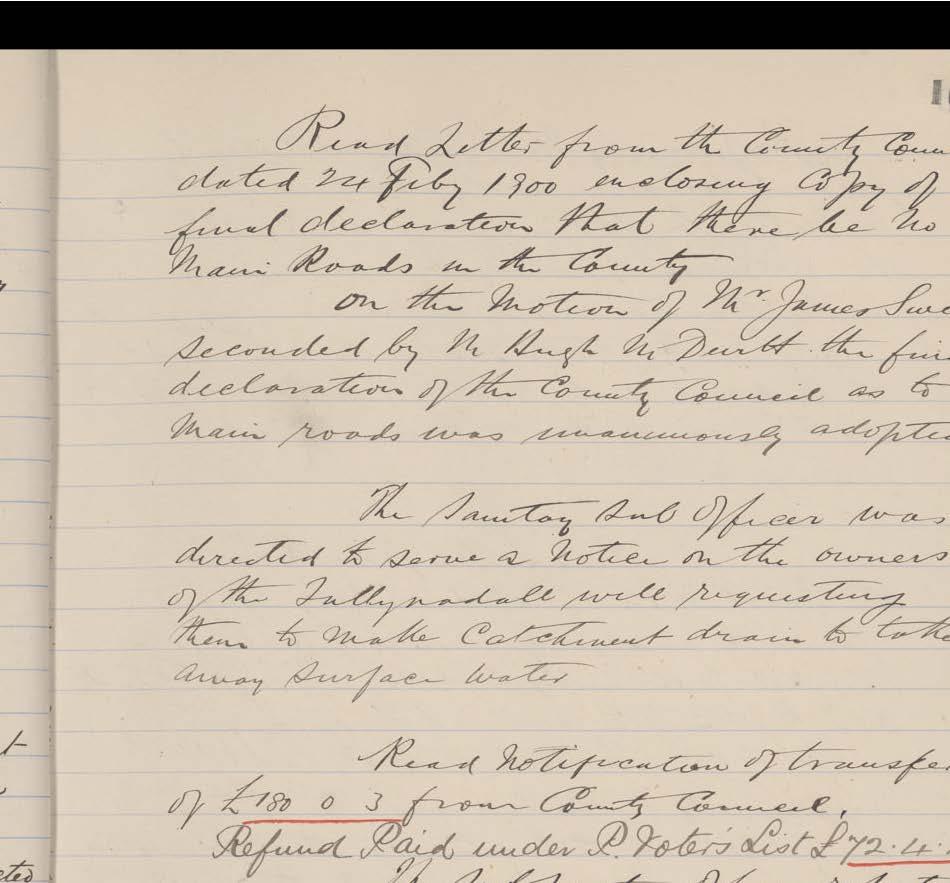 Read Letter from the County Coun
dated 24 Feby 1900 enclosing Copy of
final declaration that there be no
Main Roads in the County
on the Motion of Mr. James Swe
seconded by Mr Hugh McDevitt the fin
declaration of the County Council as to
Main roads was unanimously adopte
The Sanitary Sub Officer was
directed to serve a Notice on the owners
of the Tullynadall well requesting
them to make Catchment drain to take
away surface water
Read Notification of transfer
of £180 0 3 from County Council.
Refund Paid under P. Voters List £72.4.